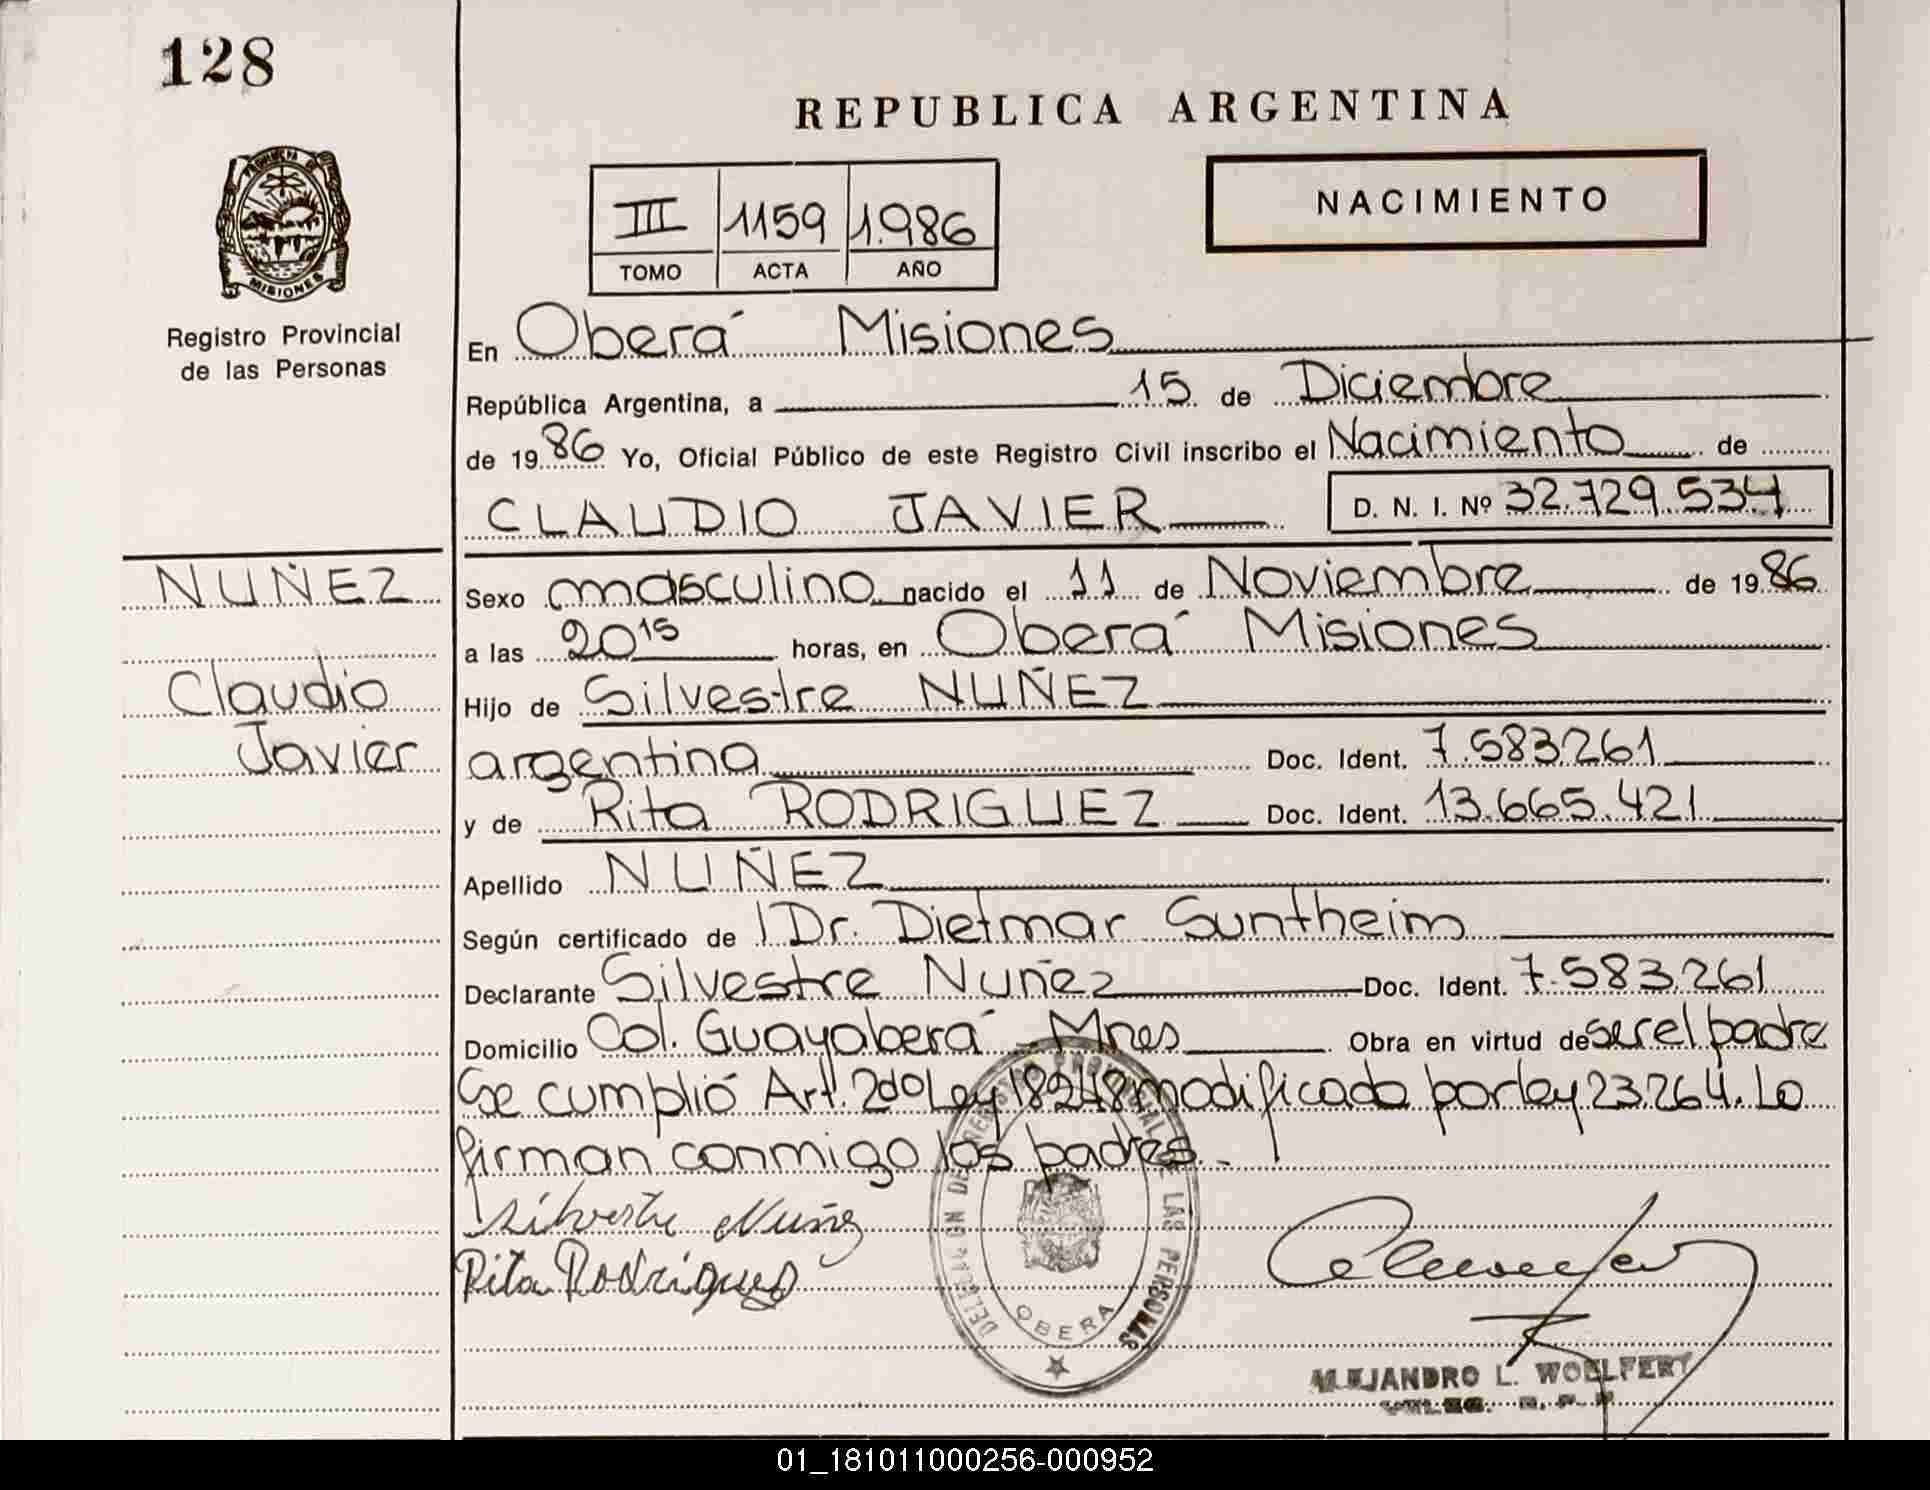 128
REPUBLICA ARGENTINA
PROVINCIA DE
MISIONES
Registro Provincial
de las Personas
III 1159 1.986
TOMO ACTA AÑO
NACIMIENTO
En Oberá Misiones
República Argentina, a 15 de Diciembre
de 1986 Yo, Oficial Público de este Registro Civil inscribo el Nacimiento de
CLAUDIO JAVIER D. N. I. Nº 32.729.534
NUÑEZ
Claudio
Javier
Sexo masculino nacido el 11 de Noviembre de 1986
a las 20 15 horas, en Oberá Misiones
Hijo de Silvestre NUÑEZ
argentina Doc. Ident. 7.583.261
y de Rita RODRIGUEZ Doc. Ident. 13.665.421
Apellido NUÑEZ
Según certificado de Dr. Dietmar Suntheim
Declarante Silvestre Nuñez Doc. Ident. 7.583.261
Domicilio Col. Guayaberá - Mnes Obra en virtud de ser el padre
Se cumplió Art. 2do Ley 18248 modificada por ley 23.264. Lo
firman conmigo los padres.-
Silvestre Nuñez
Rita Rodriguez
DELEGACION DEL REGISTRO PROVINCIAL DE LAS PERSONAS
OBERA
ALEJANDRO L. WOELFERT
01_181011000256-000952